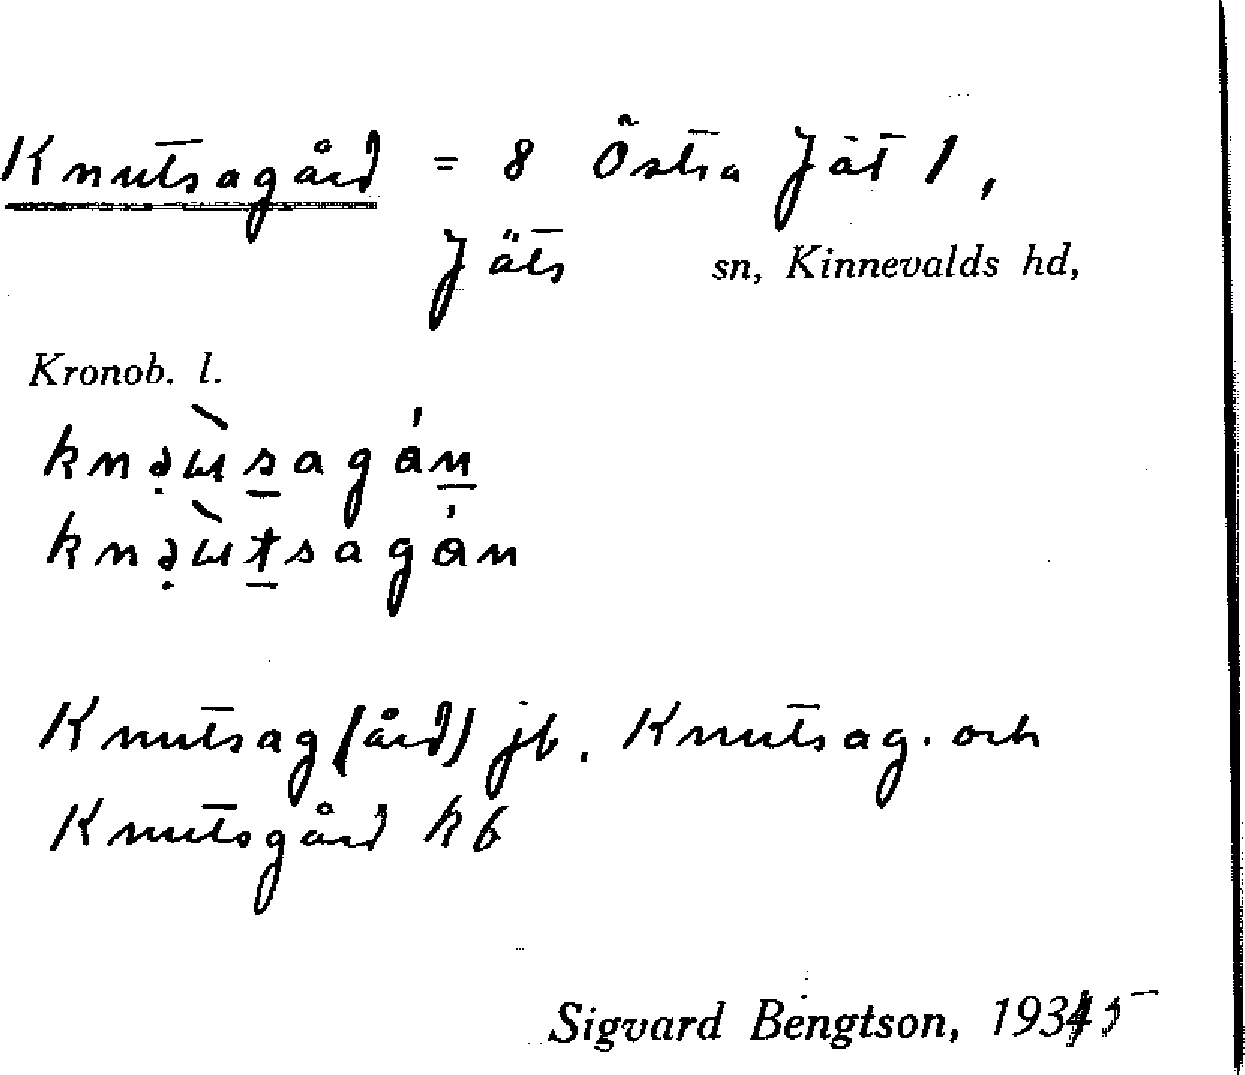 Knutsagård = 8 Östra Jät 1,
Jäts sn, Kinnevalds hd,
Kronob. l.
knə̣ùsagán
knə̣ùtsagán
Knutsag(ård) jb. Knutsag. och
Knutsgård kb
Sigvard Bengtson, 1935